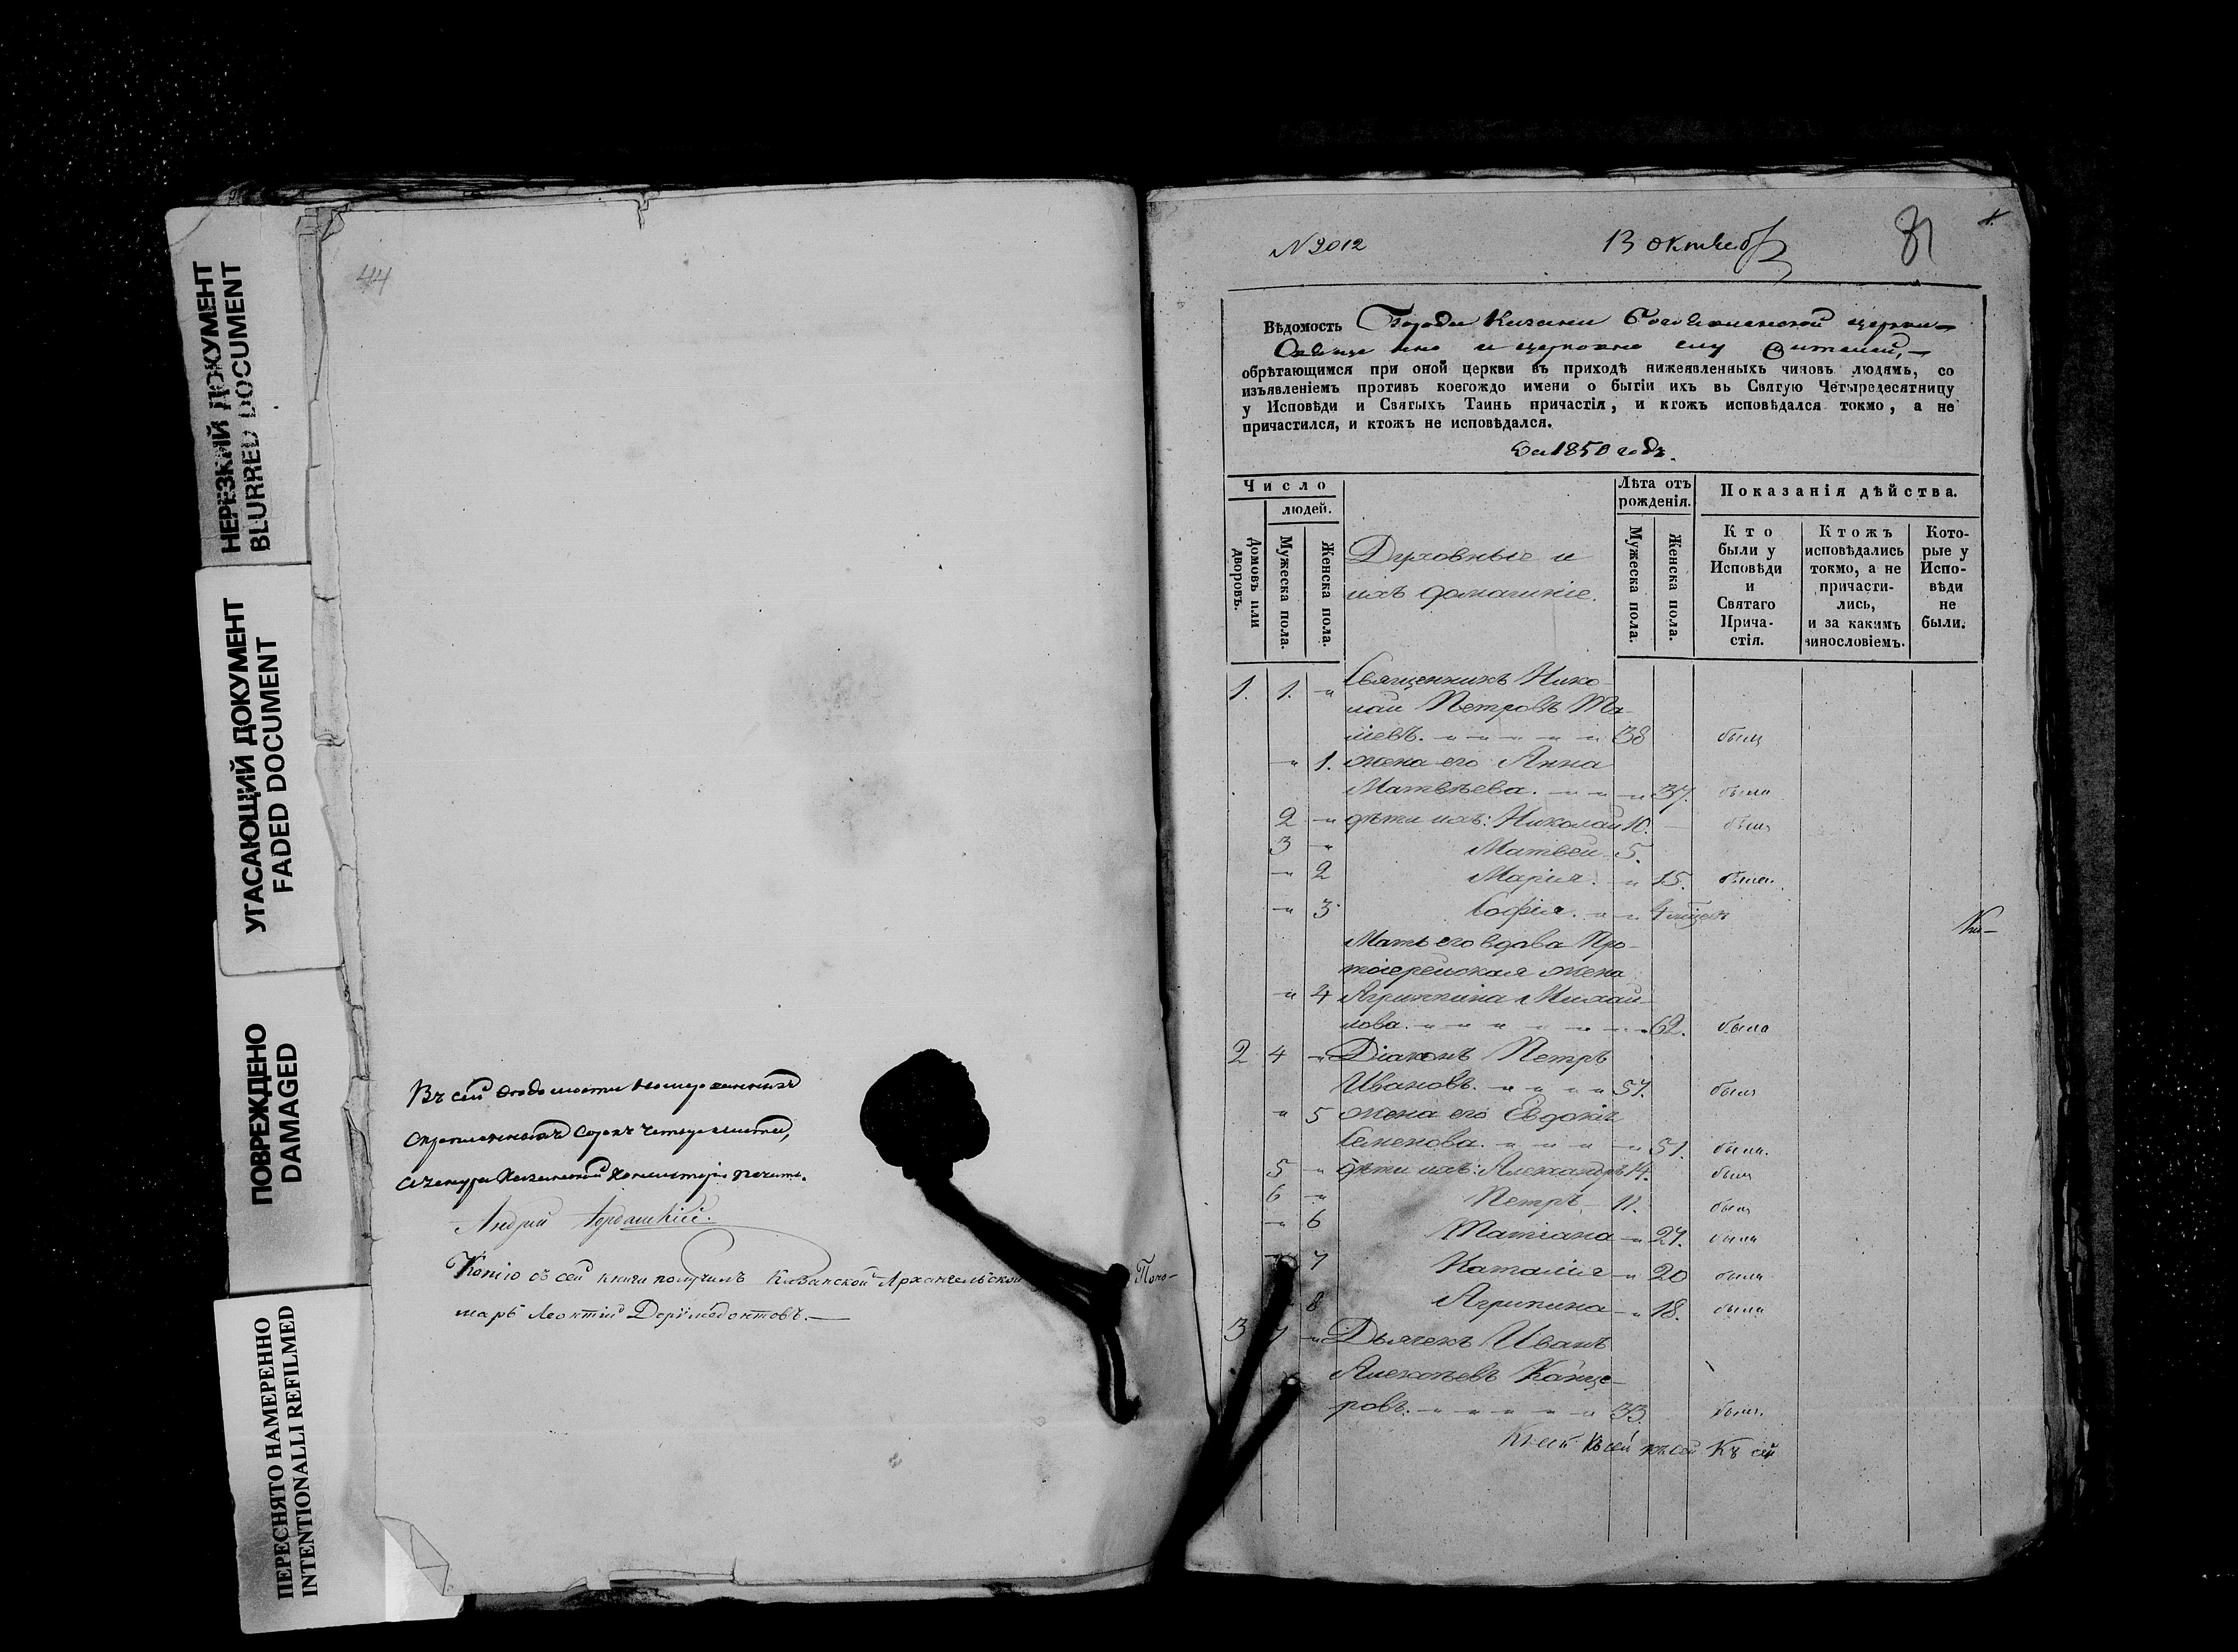 НЕРЕЗКИЙ ДОКУМЕНТ
BLURRED DOCUMENT
УГАСАЮЩИЙ ДОКУМЕНТ
FADED DOCUMENT
ПОВРЕЖДЕНО
DAMAGED
ПЕРЕСНЯТО НАМЕРЕННО
INTENTIONALLI REFILMED
44
Въ сей
листа,
печать.
Андрей
Копію съ сей книги получилъ Казанской Архангельской Поно-
марь Леонтій Доримедонтовъ.
№ 2012
13 октября
81
Вѣдомость Города Казани Богоявленской церкви
обрѣтающимся при оной церкви въ приходѣ нижеявленныхъ чиновъ людямъ, со
изъявленіемъ противъ коегождо имени о бытіи ихъ въ Святую Четыредесятницу
у Исповѣди и Святыхъ Таинъ причастія, и ктожъ исповѣдался токмо, а не
причастился, и ктожъ не исповѣдался.
За 1850 годъ.
Число
людей.
Домовъ или дворовъ.
Мужеска пола.
Женска пола.
Духовные и
ихъ домашніе.
Лѣта отъ рожденія.
Мужеска пола.
Женска пола.
Показанія дѣйства.
Кто были у Исповѣди и Святаго Причастія.
Ктожъ исповѣдались токмо, а не причастились, и за какимъ винословіемъ.
Которые у Исповѣди не были.
1. 1. Священникъ Нико-
лай Петровъ
38 былъ
1. жена его Анна
Матвѣева. 37. была
2 дѣти ихъ: Николай 10. былъ
3 Матвей 5.
2 Марія. 15. была.
3 Софія. 4
Мать его вдова Про-
тоіерейская жена
4 Агриппина Михай-
лова. 62. была
2 4 Діаконъ Петръ
Ивановъ. 57. былъ
5 жена его Евдокія
Семенова. 51. была.
5 дѣти ихъ: Александръ 14. былъ
6 Петръ 11. былъ
6 Татіана 27. была
7 Наталія 20 была
8 Агрипина 18. была
3 7 Дьячекъ Иванъ
Алексѣевъ Канце-
ровъ. 33. былъ.
Къ сей къ сей къ сей Къ сей